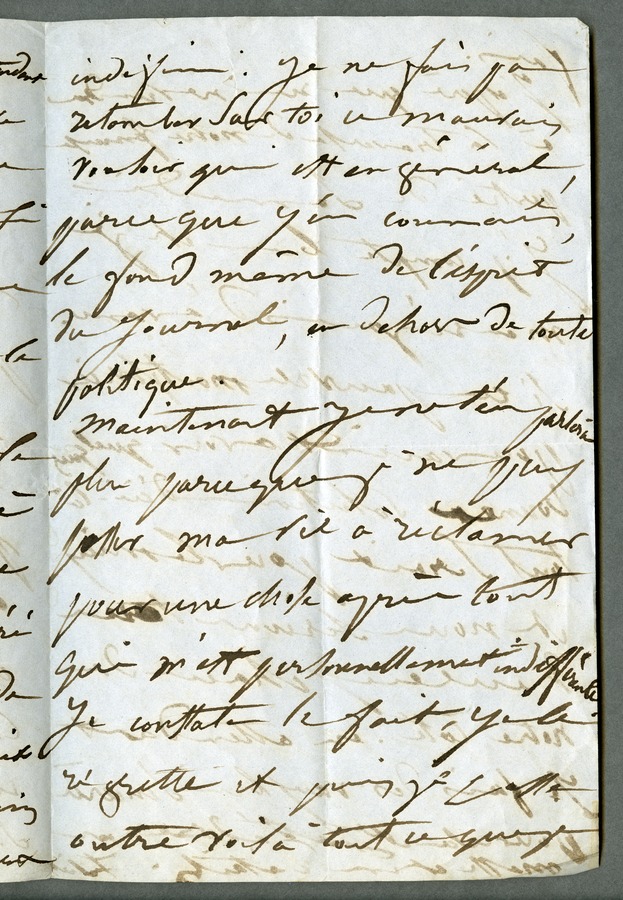 indéfini. Je ne fais pas
retomber sur toi ce mauvais
vouloir qui est en général,
parceque j'en connais,
le fond même de l'esprit
du Journal, en dehors de toute
politique.
maintenant je ne t'en parlerai
plus parceque je ne puis
passer ma vie à réclamer
pour une chose après tout
qui m'est personnellement indifférente
Je constate le fait, je le
régrette et puis je passe
outre voilà tout ce que je